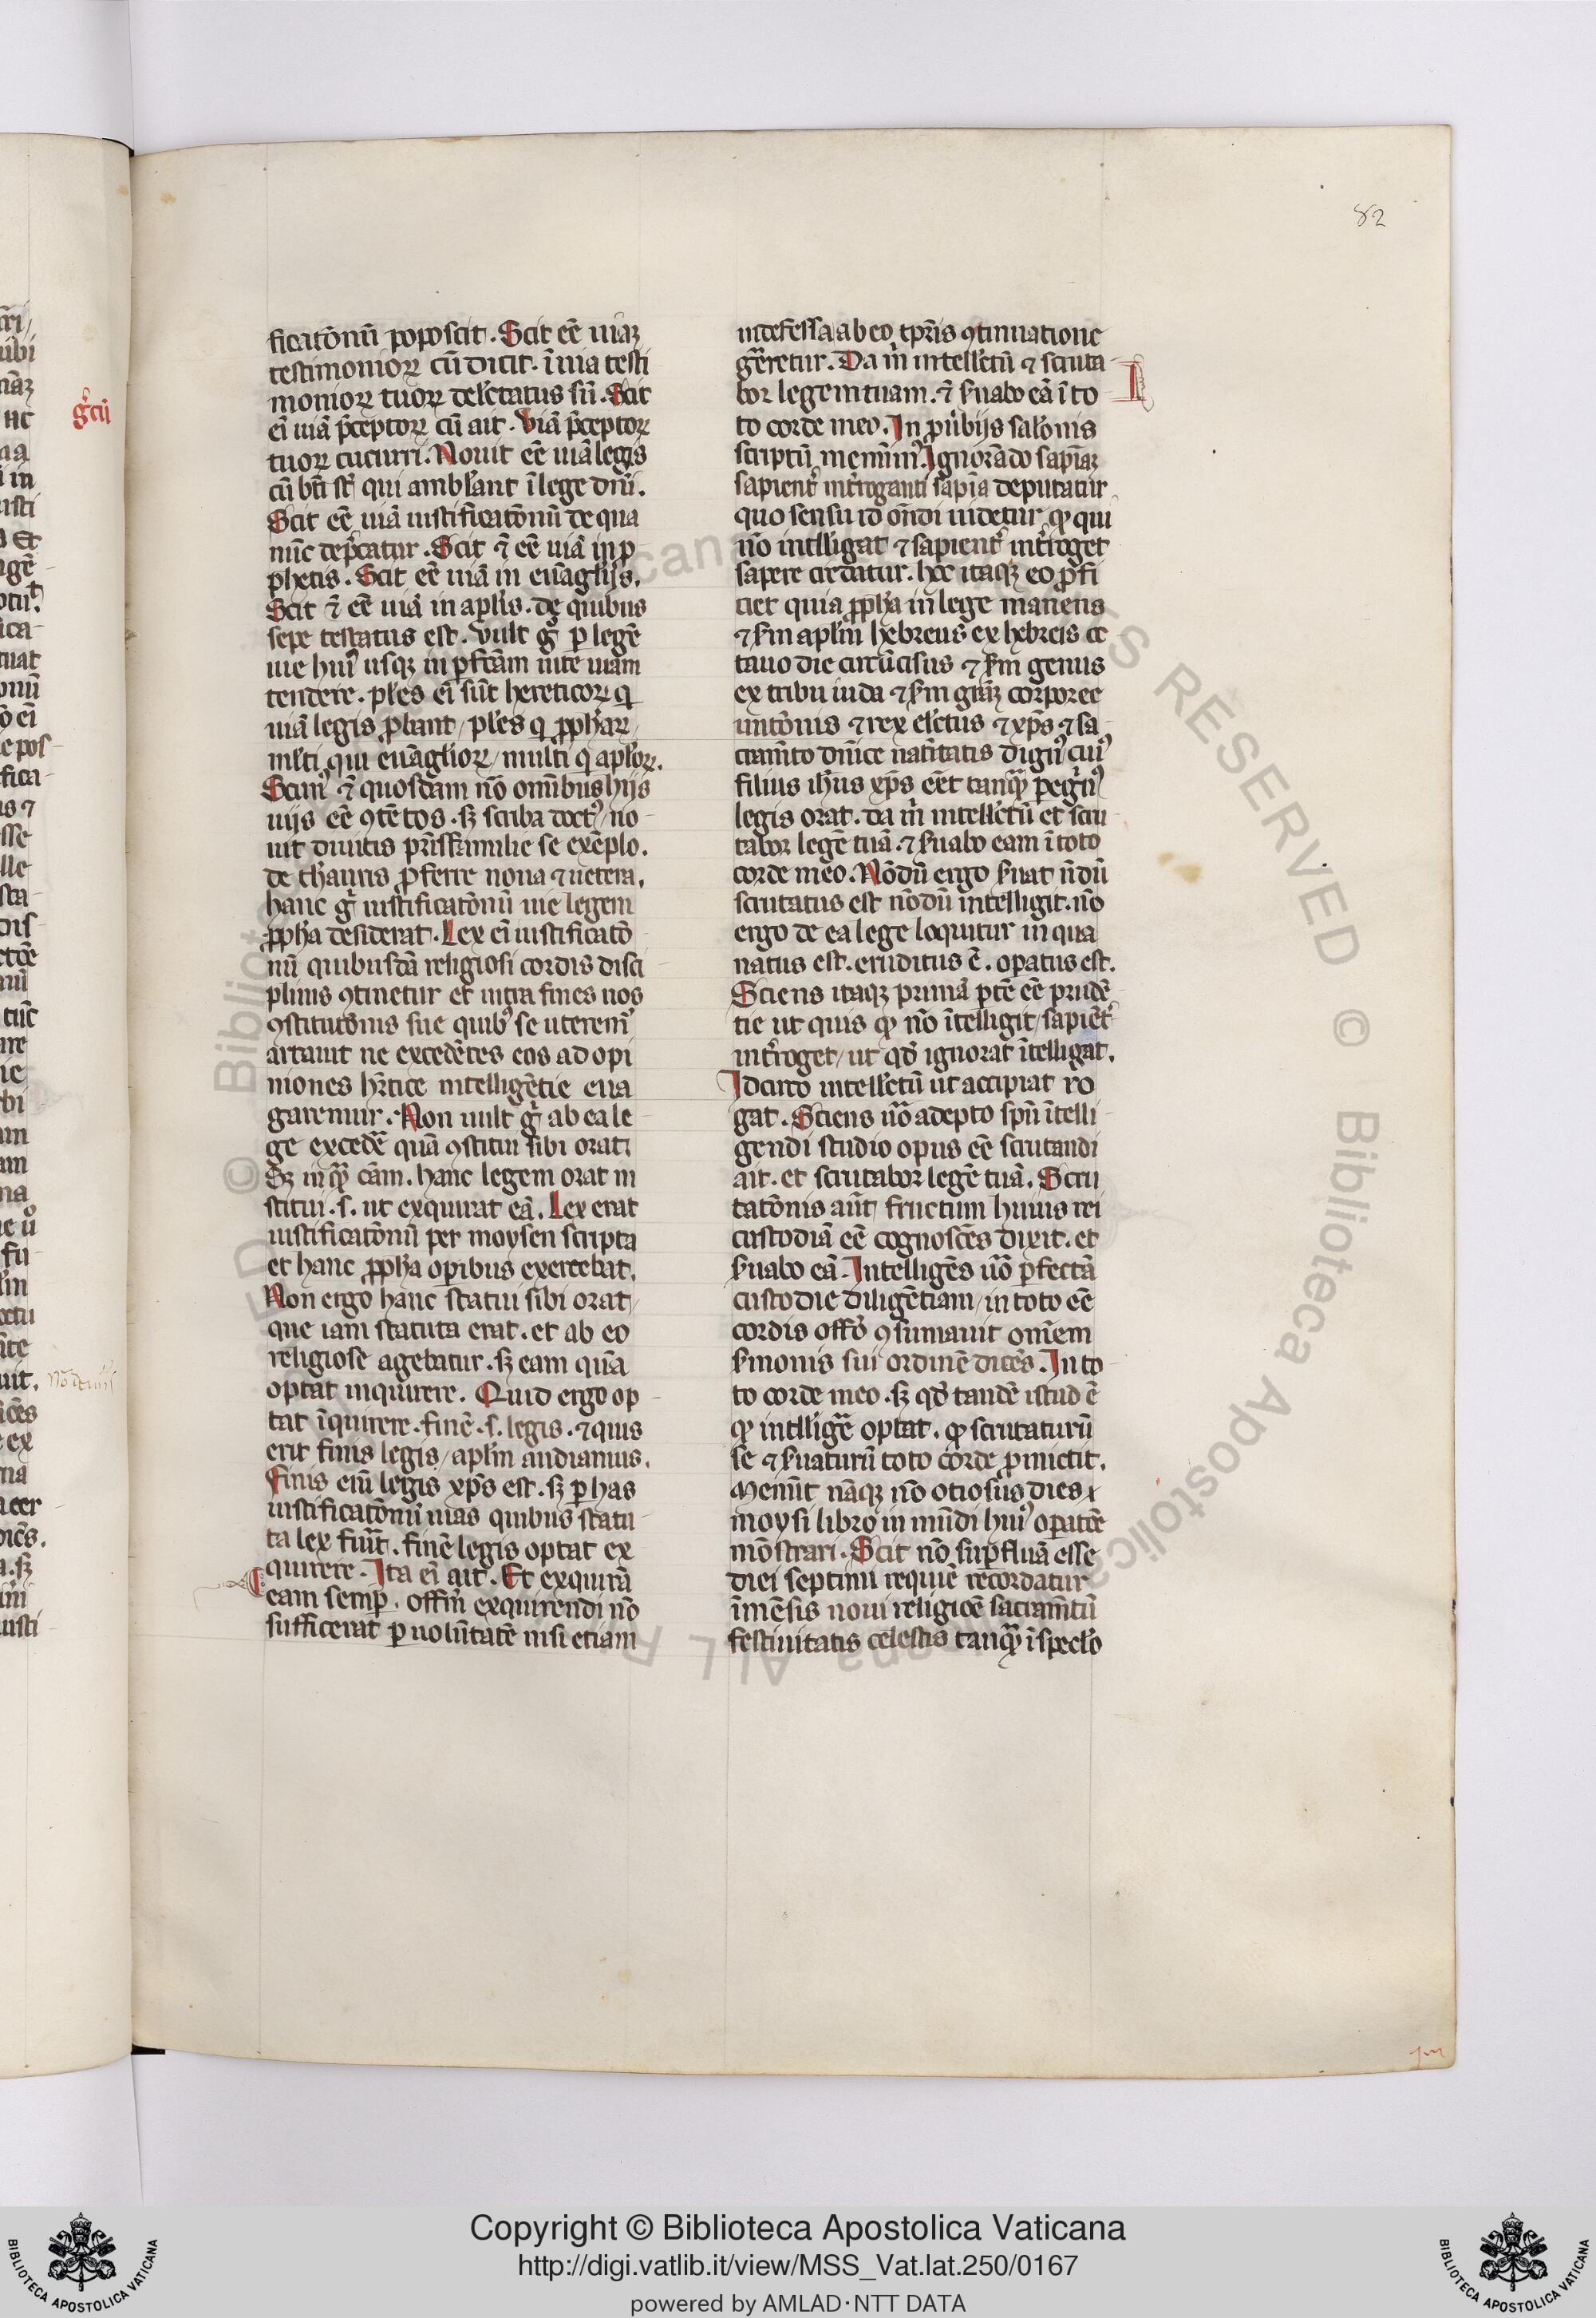 82
ficatōnū poposcit. Scit eē uiaꝫ
testimonioꝝ cū dicit. ī uia testi
monioꝝ tuoꝝ delꝯtatus sū. Scit
eī uiā p̄ceptoꝝ cū ait. Viā p̄ceptoꝝ
tuoꝝ cucurri. Nouit eē uiā legis
cū bt̄i st̄ qui ambl̓ant ī lege dn̄i.
Scit eē uiā iustificatōnū de qua
nūc dep̄catur. Scit ⁊̄ eē uiā in p
phetis. Scit eē uiā in euāglijs.
Scit ⁊̄ eē uiā in apl̓is. de quibus
sepe testatus est. Vult g̊ p legē
uie huiꝰ usqꝫ in pfc̄am uite uiam
tendere. pl̓es eī sūt hereticoꝝ q̇
uiā legis ꝓbant / pl̓es q̇ ꝓph̓aꝝ /
ml̓ti qui euāglioꝝ / multi q̇ apl̓oꝝ.
Scimꝰ ⁊̄ quosdam nō omībus hijs
uijs eē ꝯtētos. sꝫ scriba doctꝰ / no
uit diuitis pr̄isfamilie se exēplo.
de th̓auris ꝓferre noua ⁊ uetera.
hanc g̊ iustificatōnū uie legem
ꝓph̓a desiderat. Lex eī iustificatō
nū quibusdā religiosi cordis disci
plinis ꝯtinetur et intra fines nos
ꝯstitutōnis sue quibꝰ se uteremꝰ
artauit ne excedētes eos ad opi
niones hr̄tice intelligētie eua
garemur. Non uult g̊ ab ea le
ge excedē quā ꝯstitui sibi orat.
Sꝫ inq̄ͣ cām. hanc legem orat in
stitui. s. ut exquirat eā. Lex erat
iustificatōnū per moysen scripta
et hanc ꝓph̓a opibus exercebat.
Non ergo hanc statui sibi orat /
que iam statuta erat. et ab eo
religiose agebatur. sꝫ eam quā
optat inquirere. Quid ergo op
tat īquirere. finē. s. legis. ⁊ quis
erit finis legis / apl̓m audiamus.
Finis eiṁ legis xp̄s est. sꝫ p has
iustificatōnū uias quibus statu
ta lex fūt. finē legis optat ex
quirere. Ita eī ait. Et exquirā
eam semp. offm̄ exquirendi nō
sufficerat p uolūtatē nisi etiam
indefessa ab eo tp̄ris ꝯtinuatione
gēretur. Da m̄ intellc̄tū ⁊ scruta
bor legem tuam. ⁊̄ s̓uabo eā ī to
to corde meo. In ꝓūbijs salōnis
scriptū meminimꝰ. Ignorādo sapīaꝫ
sapient̄ int̄roganti sapīa deputatur
quo sensu id on̄di uidetur ꝙ qui
nō intlligat ⁊ sapient̄ int̄roget
sapere credatur. hec itaqꝫ eo ꝓfi
ciet quia ꝓph̓a in lege manens
⁊ s̓m apl̓m hebreus ex hebreis oc
tauo die circūcisus ⁊ s̓m genus
ex tribu iuda ⁊ s̓m gr̄aꝫ corporee
untōnis ⁊ rex elc̄tus ⁊ xp̄s ⁊ sa
cramēto dn̄ice natiītatis dignꝰ / cuiꝰ
filius ih̓us xp̄s eēt tanqͣ̄ pegr̓nꝰ
legis orat. da m̄ intellc̄tū et scru
tabor legē tuā. ⁊ s̓uabo eam ī toto
corde meo. Nōdū ergo s̓uat n̄dū
scrutatus est nōdū intelligit. nō
ergo de ea lege loquitur in qua
natus est. eruditus ē. opatus est.
Sciens itaqꝫ primā ptē eē prudē
tie ut quis ꝙ nō ītelligit / sapiēt̄
int̄roget / ut qd̓ ignorat ītelligat.
Idcirco intellc̄tū ut accipiat ro
gat. Sciens ūo adepto spū ītelli
gendi studio opus eē scrutandi
ait. et scrutabor legē tuā. Scru
tatōnis aūt fructum huius rei
custodiā eē cognoscēs dixit. et
s̓uabo eā. Intelligēs ūo pfectā
custodie diligētiam / in toto eē
cordis offō ꝯsumauit omēm
s̓monis sui ordinē dicēs. In to
to corde meo. sꝫ qd̓ tandē istud ē
ꝙ intlligē optat. ꝙ scrutaturū
se ⁊ s̓uaturū toto corde ꝓmictit.
Meminit nāqꝫ nō otiosus dies ī
moysi libro in mūdi huiꝰ opatōe
mōstrari. Scit nō supfluā esse
diei septimi requiē recordatur
īmēsis noui religiōe sacramētū
festiuitatis celestis tanqͣ̄ ī spec̄lo
Copyright © Biblioteca Apostolica Vaticana
http://digi.vatlib.it/view/MSS_Vat.lat.250/0167
powered by AMLAD·NTT DATA